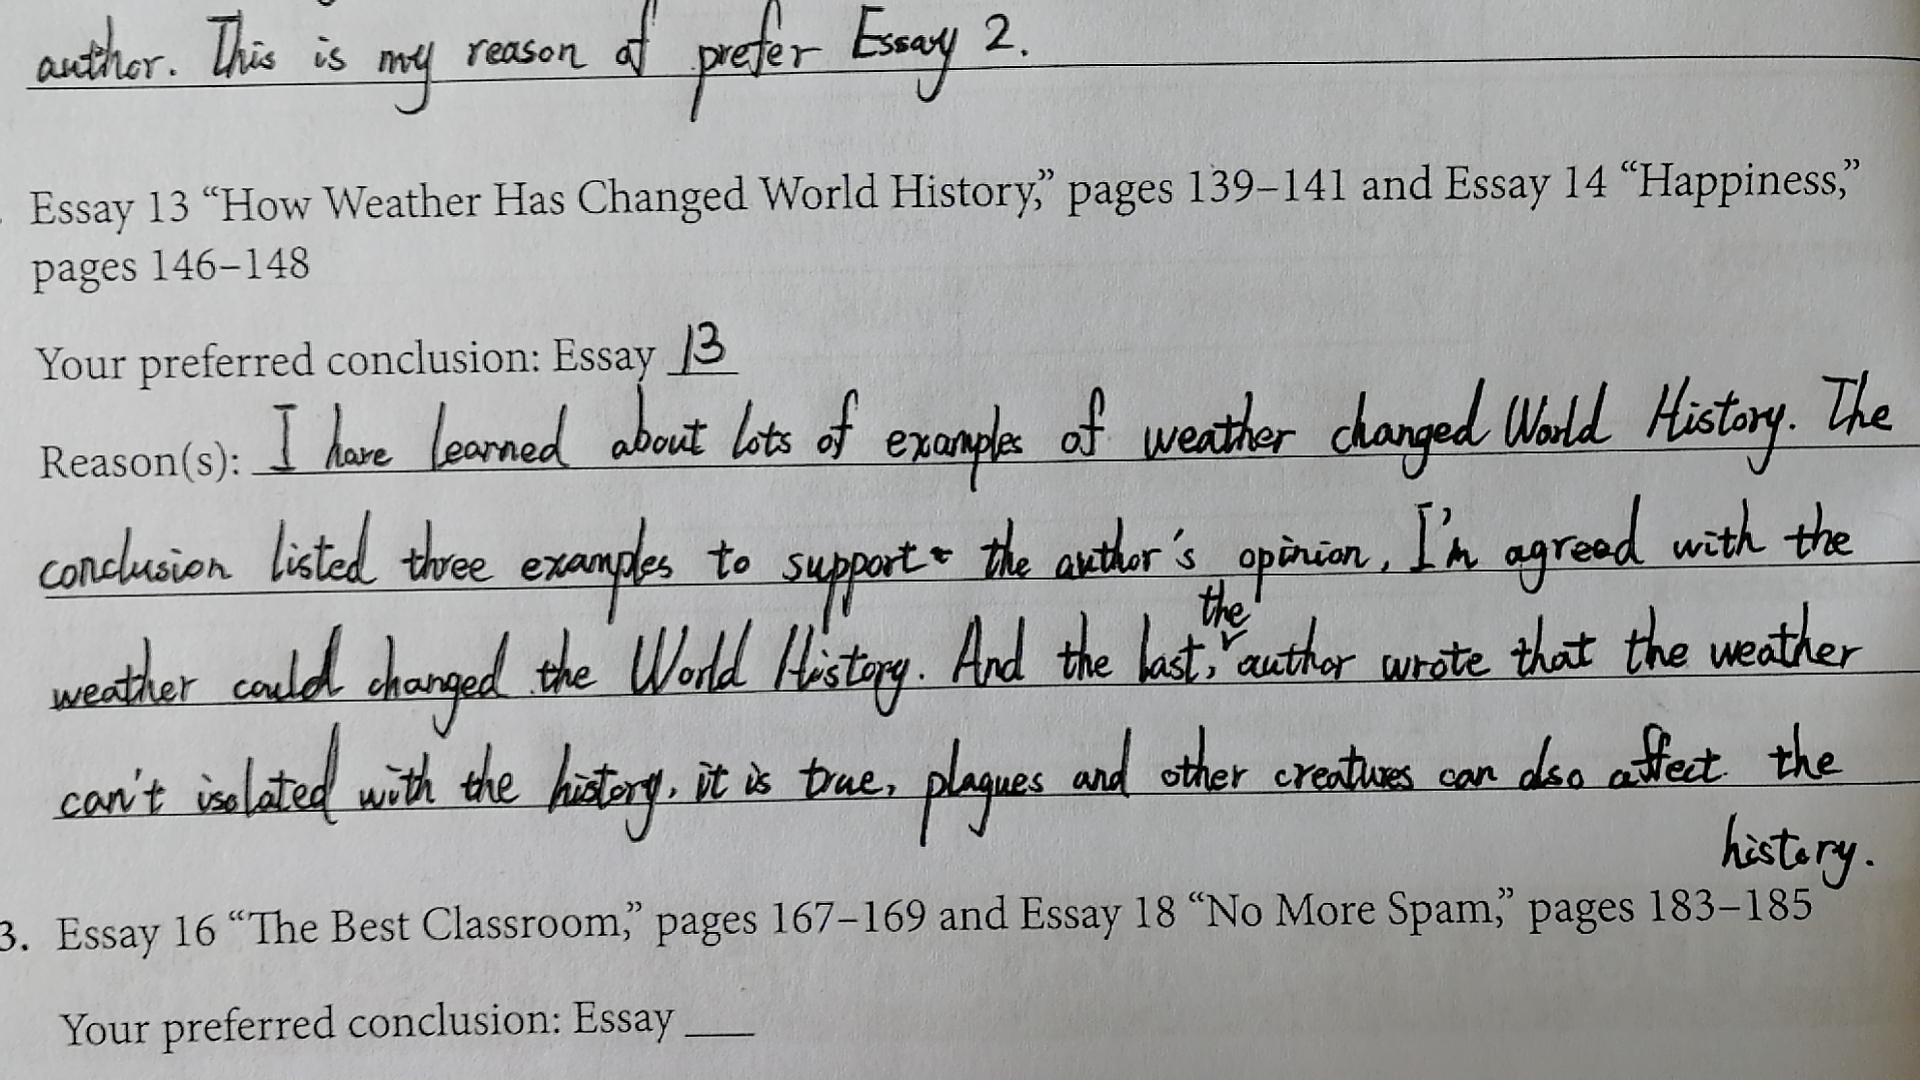 author. This is my reason of prefer Essay 2.
Essay 13 “How Weather Has Changed World History,” pages 139–141 and Essay 14 “Happiness,”
pages 146–148
Your preferred conclusion: Essay 13
Reason(s): I have learned about lots of examples of weather changed World History. The
conclusion listed three examples to support the author's opinion, I'm agreed with the
the
weather could changed the World History. And the last, author wrote that the weather
can't isolated with the history, it is true, plagues and other creatures can also affect the
history.
3. Essay 16 “The Best Classroom,” pages 167–169 and Essay 18 “No More Spam,” pages 183–185
Your preferred conclusion: Essay